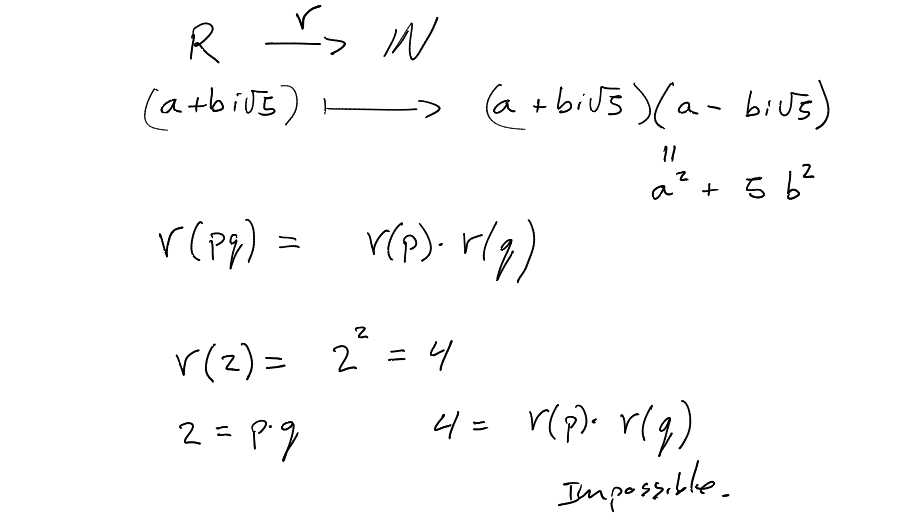 R —r→ ℕ
(a+bi√5) ⟼ (a + bi√5)(a - bi√5)
=
a² + 5 b²
r(pq) = r(p)· r(q)
r(2) = 2² = 4
2 = p·q 4 = r(p)· r(q)
Impossible.